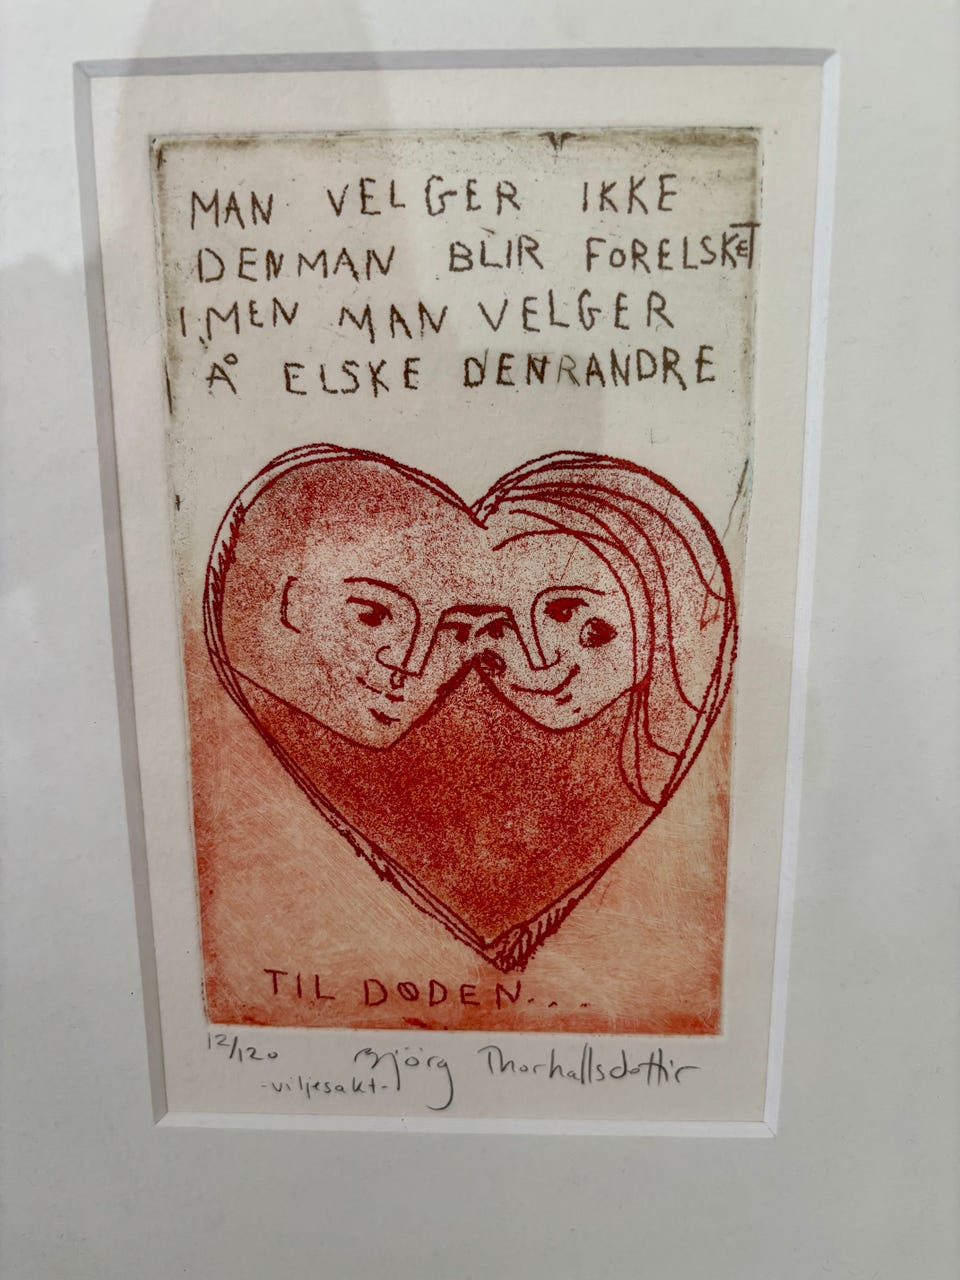 MAN VELGER IKKE
DEN MAN BLIR FORELSKET
I, MEN MAN VELGER
Å ELSKE DEN ANDRE
TIL DØDEN....
12/120
Björg Thorhallsdottir
-viljesakt-